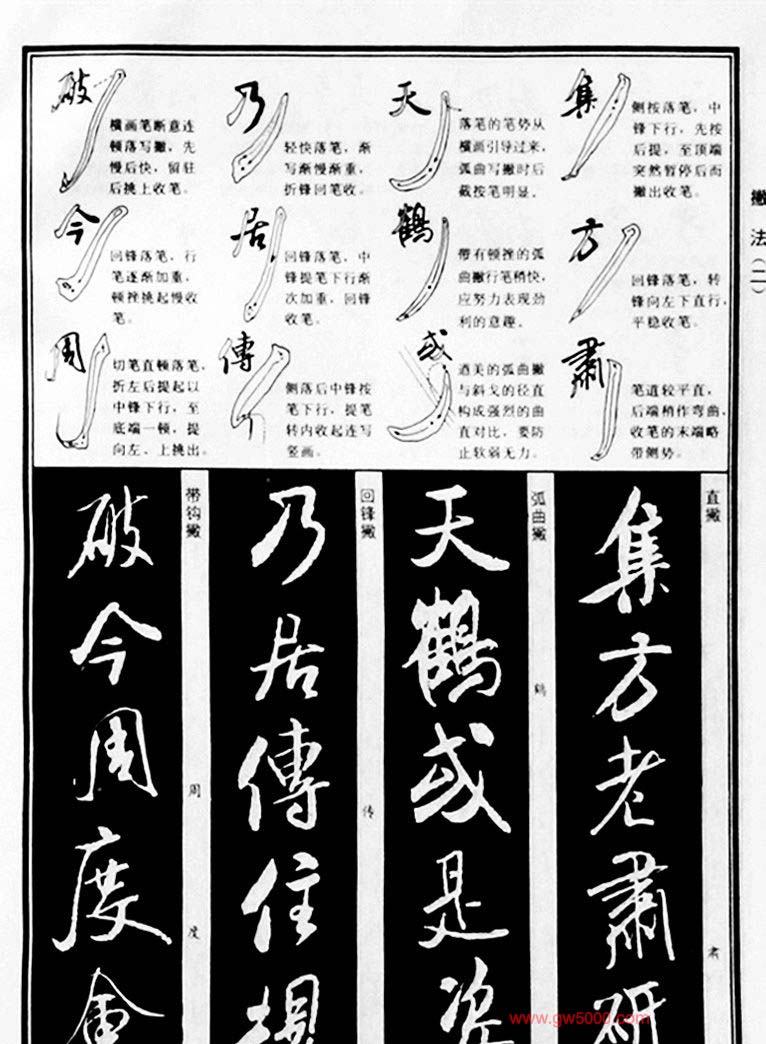 撇法(二)
集
侧按落笔，中
锋下行，先按
后提，至顶端
突然暂停后而
撇出收笔。
天
落笔的笔势从
横画引导过来，
弧曲写撇时后
截按笔明显。
乃
轻快落笔，渐
写渐慢渐重，
折锋回笔收。
破
横画笔断意连
顿落写撇，先
慢后快，留驻
后挑上收笔。
方
回锋落笔，转
锋向左下直行，
平稳收笔。
鶴
带有顿挫的弧
曲撇行笔稍快，
应努力表现劲
利的意趣。
居
回锋落笔，中
锋提笔下行渐
次加重，回锋
收笔。
今
回锋落笔，行
笔逐渐加重，
顿挫挑起慢收
笔。
肅
笔道较平直，
后端稍作弯曲，
收笔的末端略
带侧势。
或
遒美的弧曲撇
与斜戈的径直
构成强烈的曲
直对比，要防
止软弱无力。
傳
侧落后中锋按
笔下行，提笔
转内收起连写
竖画。
周
切笔直顿落笔，
折左后提起以
中锋下行，至
底端一顿，提
向左、上挑出。
直撇
肃
集方老肅研
弧曲撇
鹤
天鶴或是姿
回锋撇
传
乃居傳住規
带钩撇
周
度
破今周度
www.gw5000.com